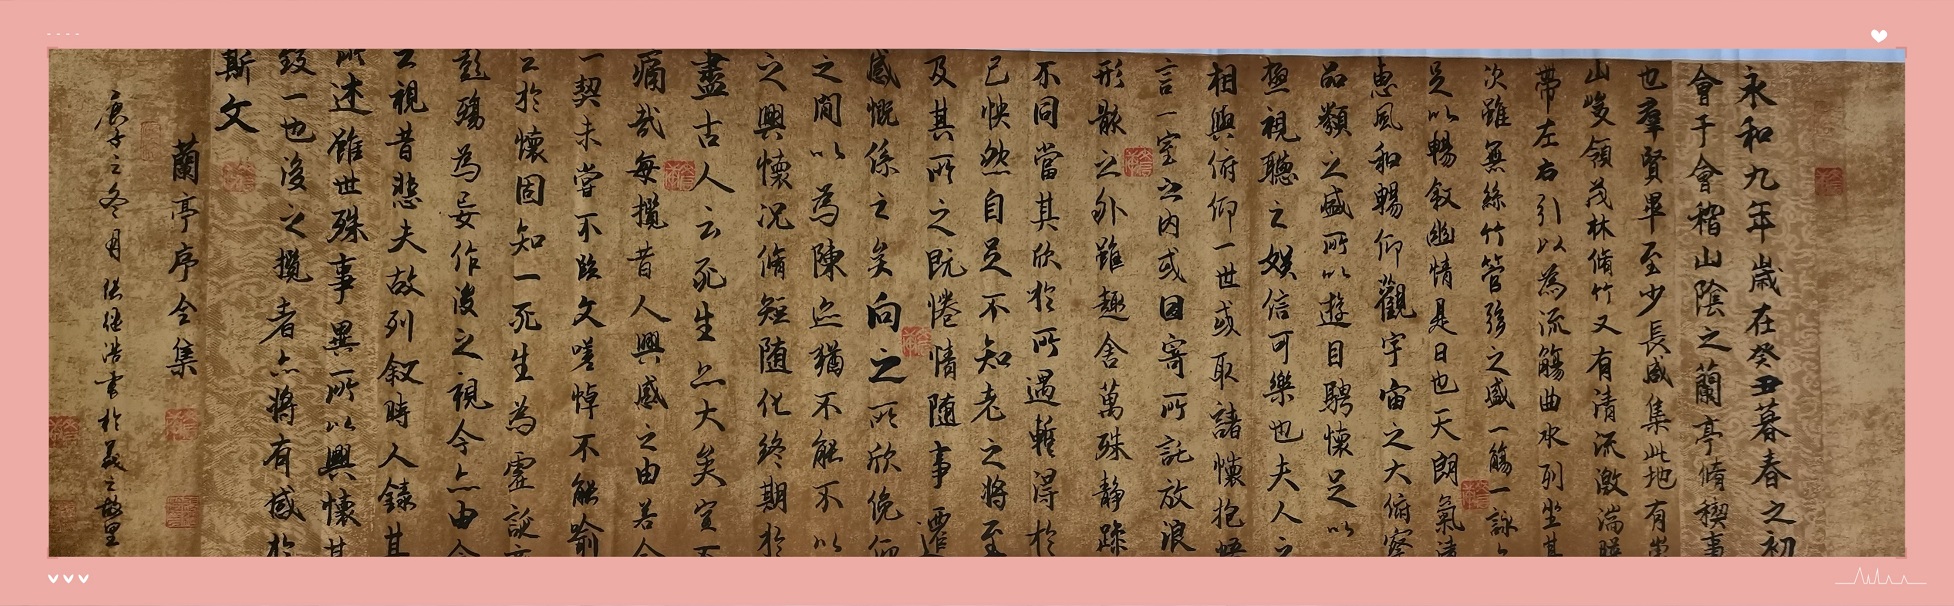 永和九年歲在癸丑暮春之初
會于會稽山陰之蘭亭脩稧事
也羣賢畢至少長咸集此地有崇
山峻領茂林脩竹又有清流激湍暎
帶左右引以為流觴曲水列坐其
次雖無絲竹管弦之盛一觴一詠
足以暢叙幽情是日也天朗氣清
惠風和暢仰觀宇宙之大俯察
品類之盛所以遊目騁懷足以
極視聽之娛信可樂也夫人之
相與俯仰一世或取諸懷抱悟
言一室之内或因寄所託放浪
形骸之外雖趣舍萬殊静躁
不同當其欣於所遇暫得於
己怏然自足不知老之將至
及其所之既惓情随事遷
感慨係之矣向之所欣俛仰
之閒以為陳迹猶不能不以
之興懷況脩短随化終期於
盡古人云死生亦大矣豈不
痛哉每攬昔人興感之由若合
一契未嘗不臨文嗟悼不能喻
之於懷固知一死生為虛誕
彭殤為妄作後之視今亦由今
之視昔悲夫故列叙時人錄其
所述雖世殊事異所以興懷其
致一也後之攬者亦將有感於
斯文
蘭亭序全集
庚子之冬月 浩書於